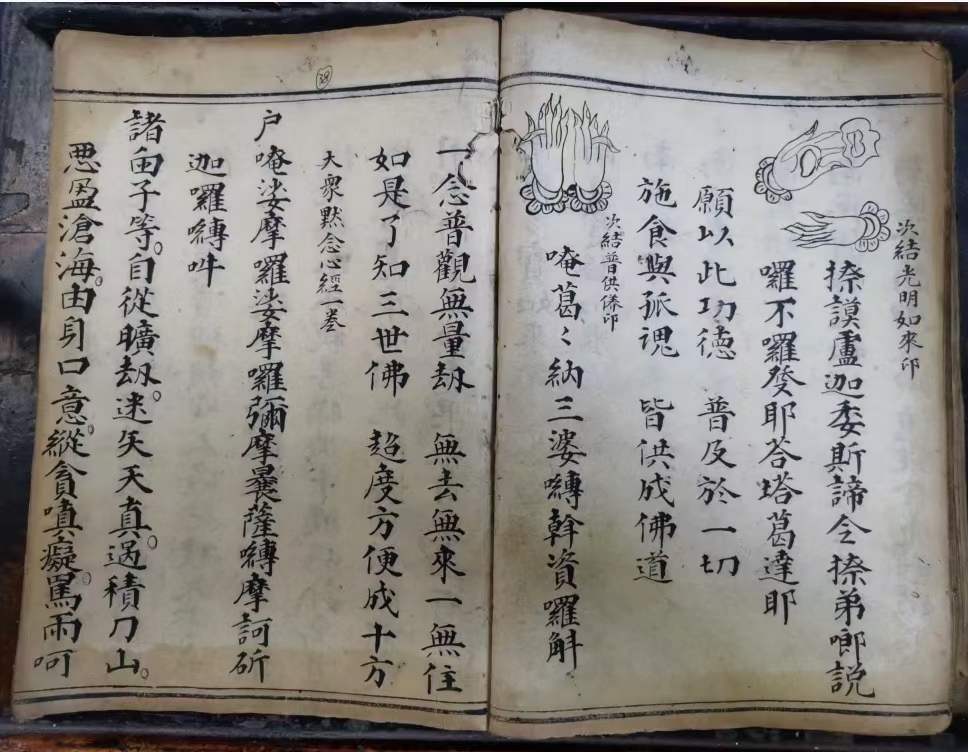 次結光明如來印
捺謨盧迦委斯諦令捺弟啷説
囉不囉癹耶荅塔葛達耶
願以此功德 普及於一切
施食與孤魂 皆供成佛道
次結普供養印
唵葛〻納三婆嚩斡資囉斛
一念普觀無量劫 無去無來一無住
如是了知三世佛 超度方便成十方
大衆默念心經一卷
户唵娑摩囉娑摩囉彌摩曩薩嚩摩訶斫
迦囉嚩吽
諸由子等。自從曠劫。迷失天真。過積刀山。
思盈滄海。由身口意。縱貪嗔癡。罵雨呵
39